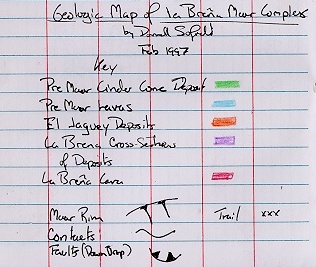 Geologic Map of La Breña Maar Complex
by Darrell
Feb 1997
Key
Pre Maar Cinder Cone Deposit
Pre Maar Lavas
El Jaguey Deposits
La Brena Cross-Sections
of Deposits
La Breña Lava
Maar Rim Trail xxx
Contacts
Faults (Down Drop)